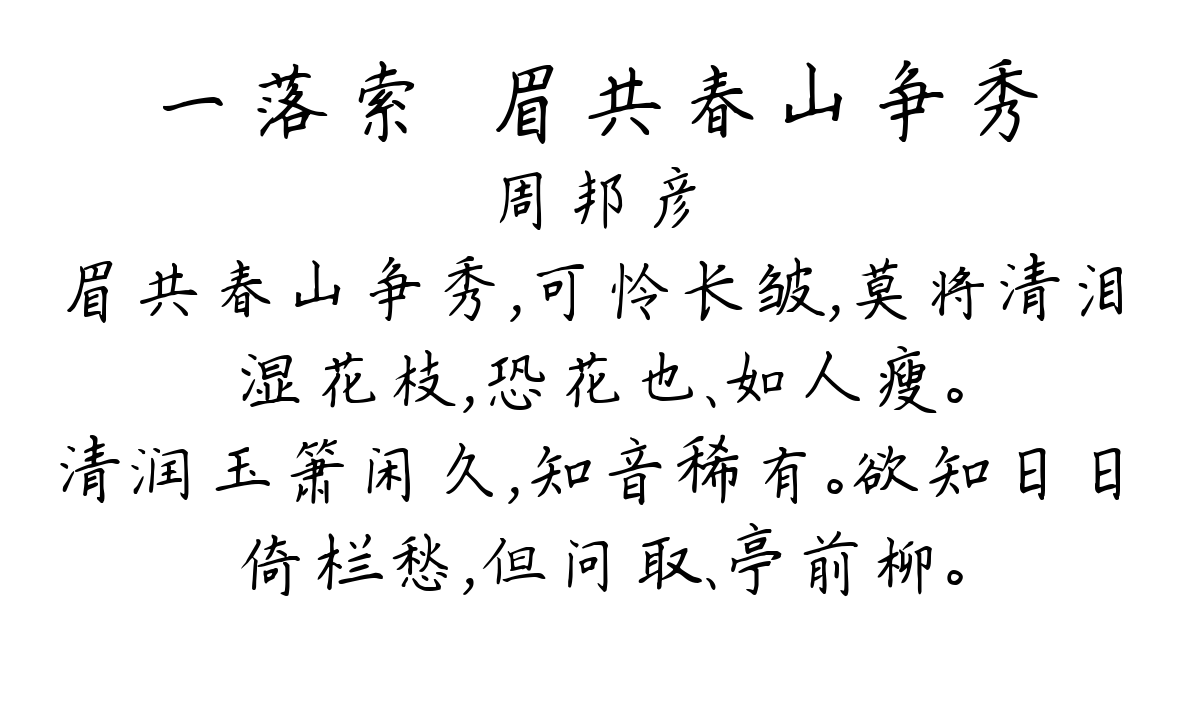 一落索 眉共春山争秀
周邦彦
眉共春山争秀,可怜长皱,莫将清泪
湿花枝,恐花也、如人瘦。
清润玉箫闲久,知音稀有。欲知日日
倚栏愁,但问取、亭前柳。